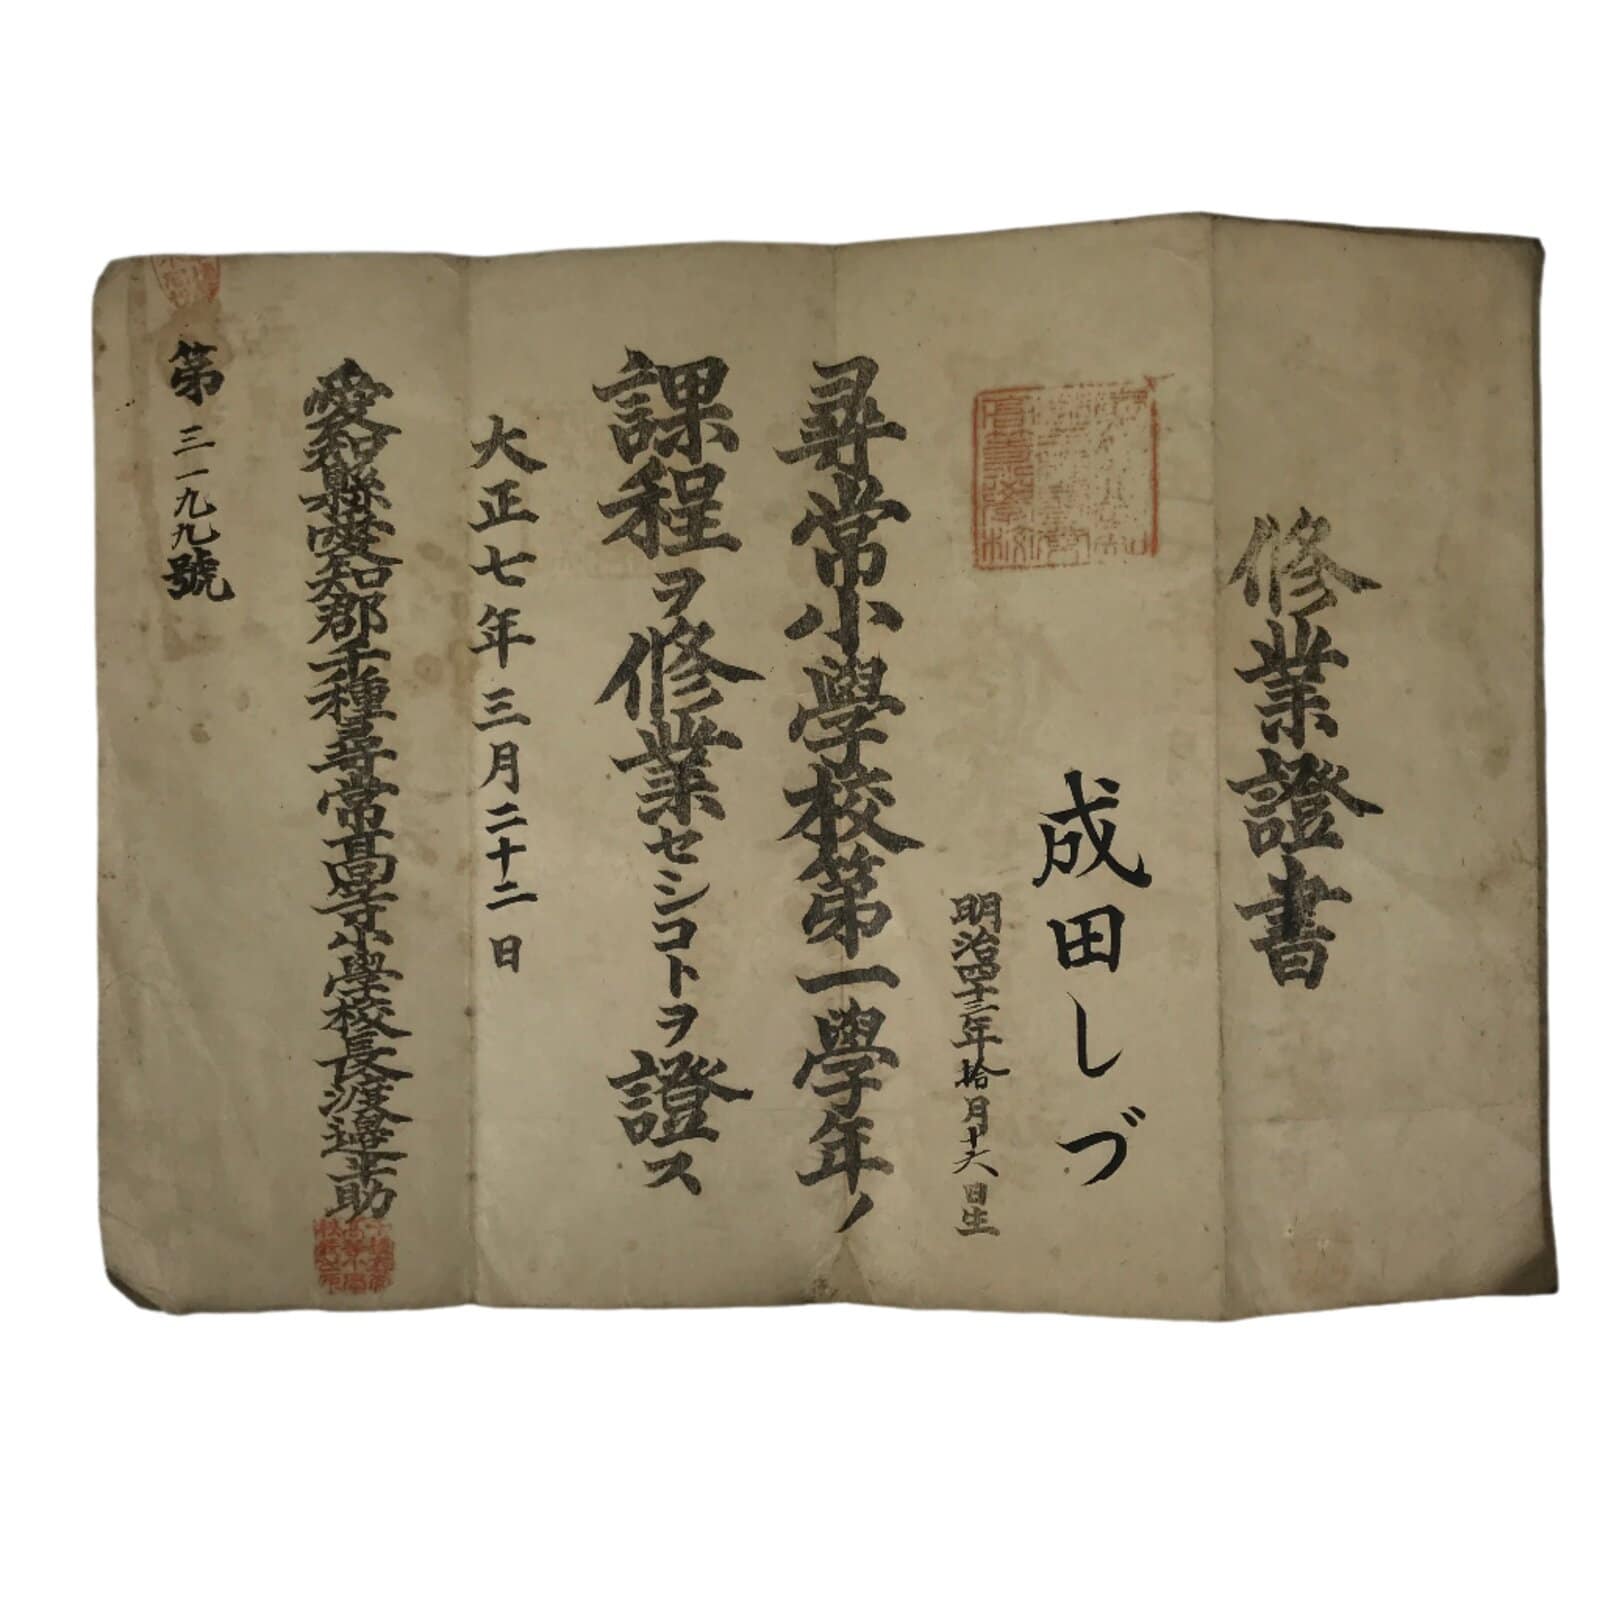 修業證書
成田しづ
明治四十三年拾月十六日生
尋常小學校第一學年ノ
課程ヲ修業セシコトヲ證ス
大正七年三月二十二日
愛知縣愛知郡千種尋常高等小學校長渡邉幸助
第三一九九號